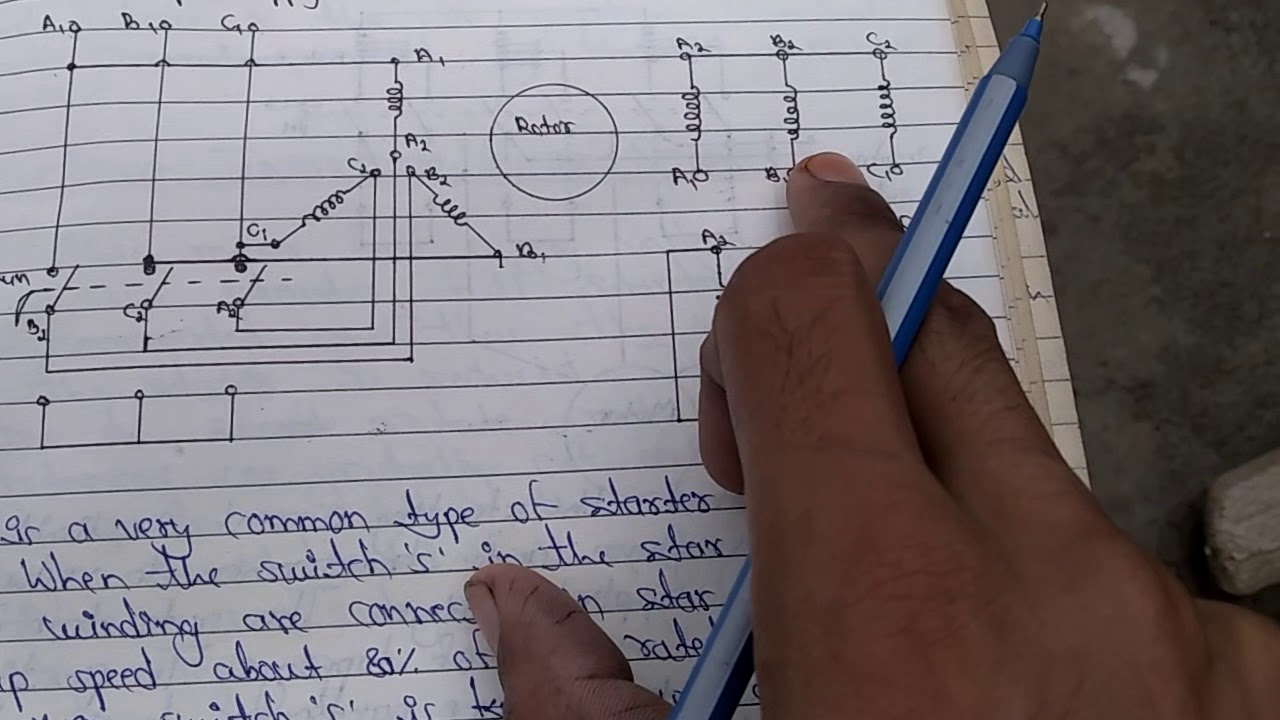 A₁ B₁ C₁
A₁
A₂ B₂ C₂
Rotor
A₂
C₂ B₂
A₁ B₁ C₁
C₁
B₁
A₂
B₂ C₂ A₂
is a very common type of starter
When the switch 's' in the star
winding are connec in star
speed about 80% of rate
switch 's' is